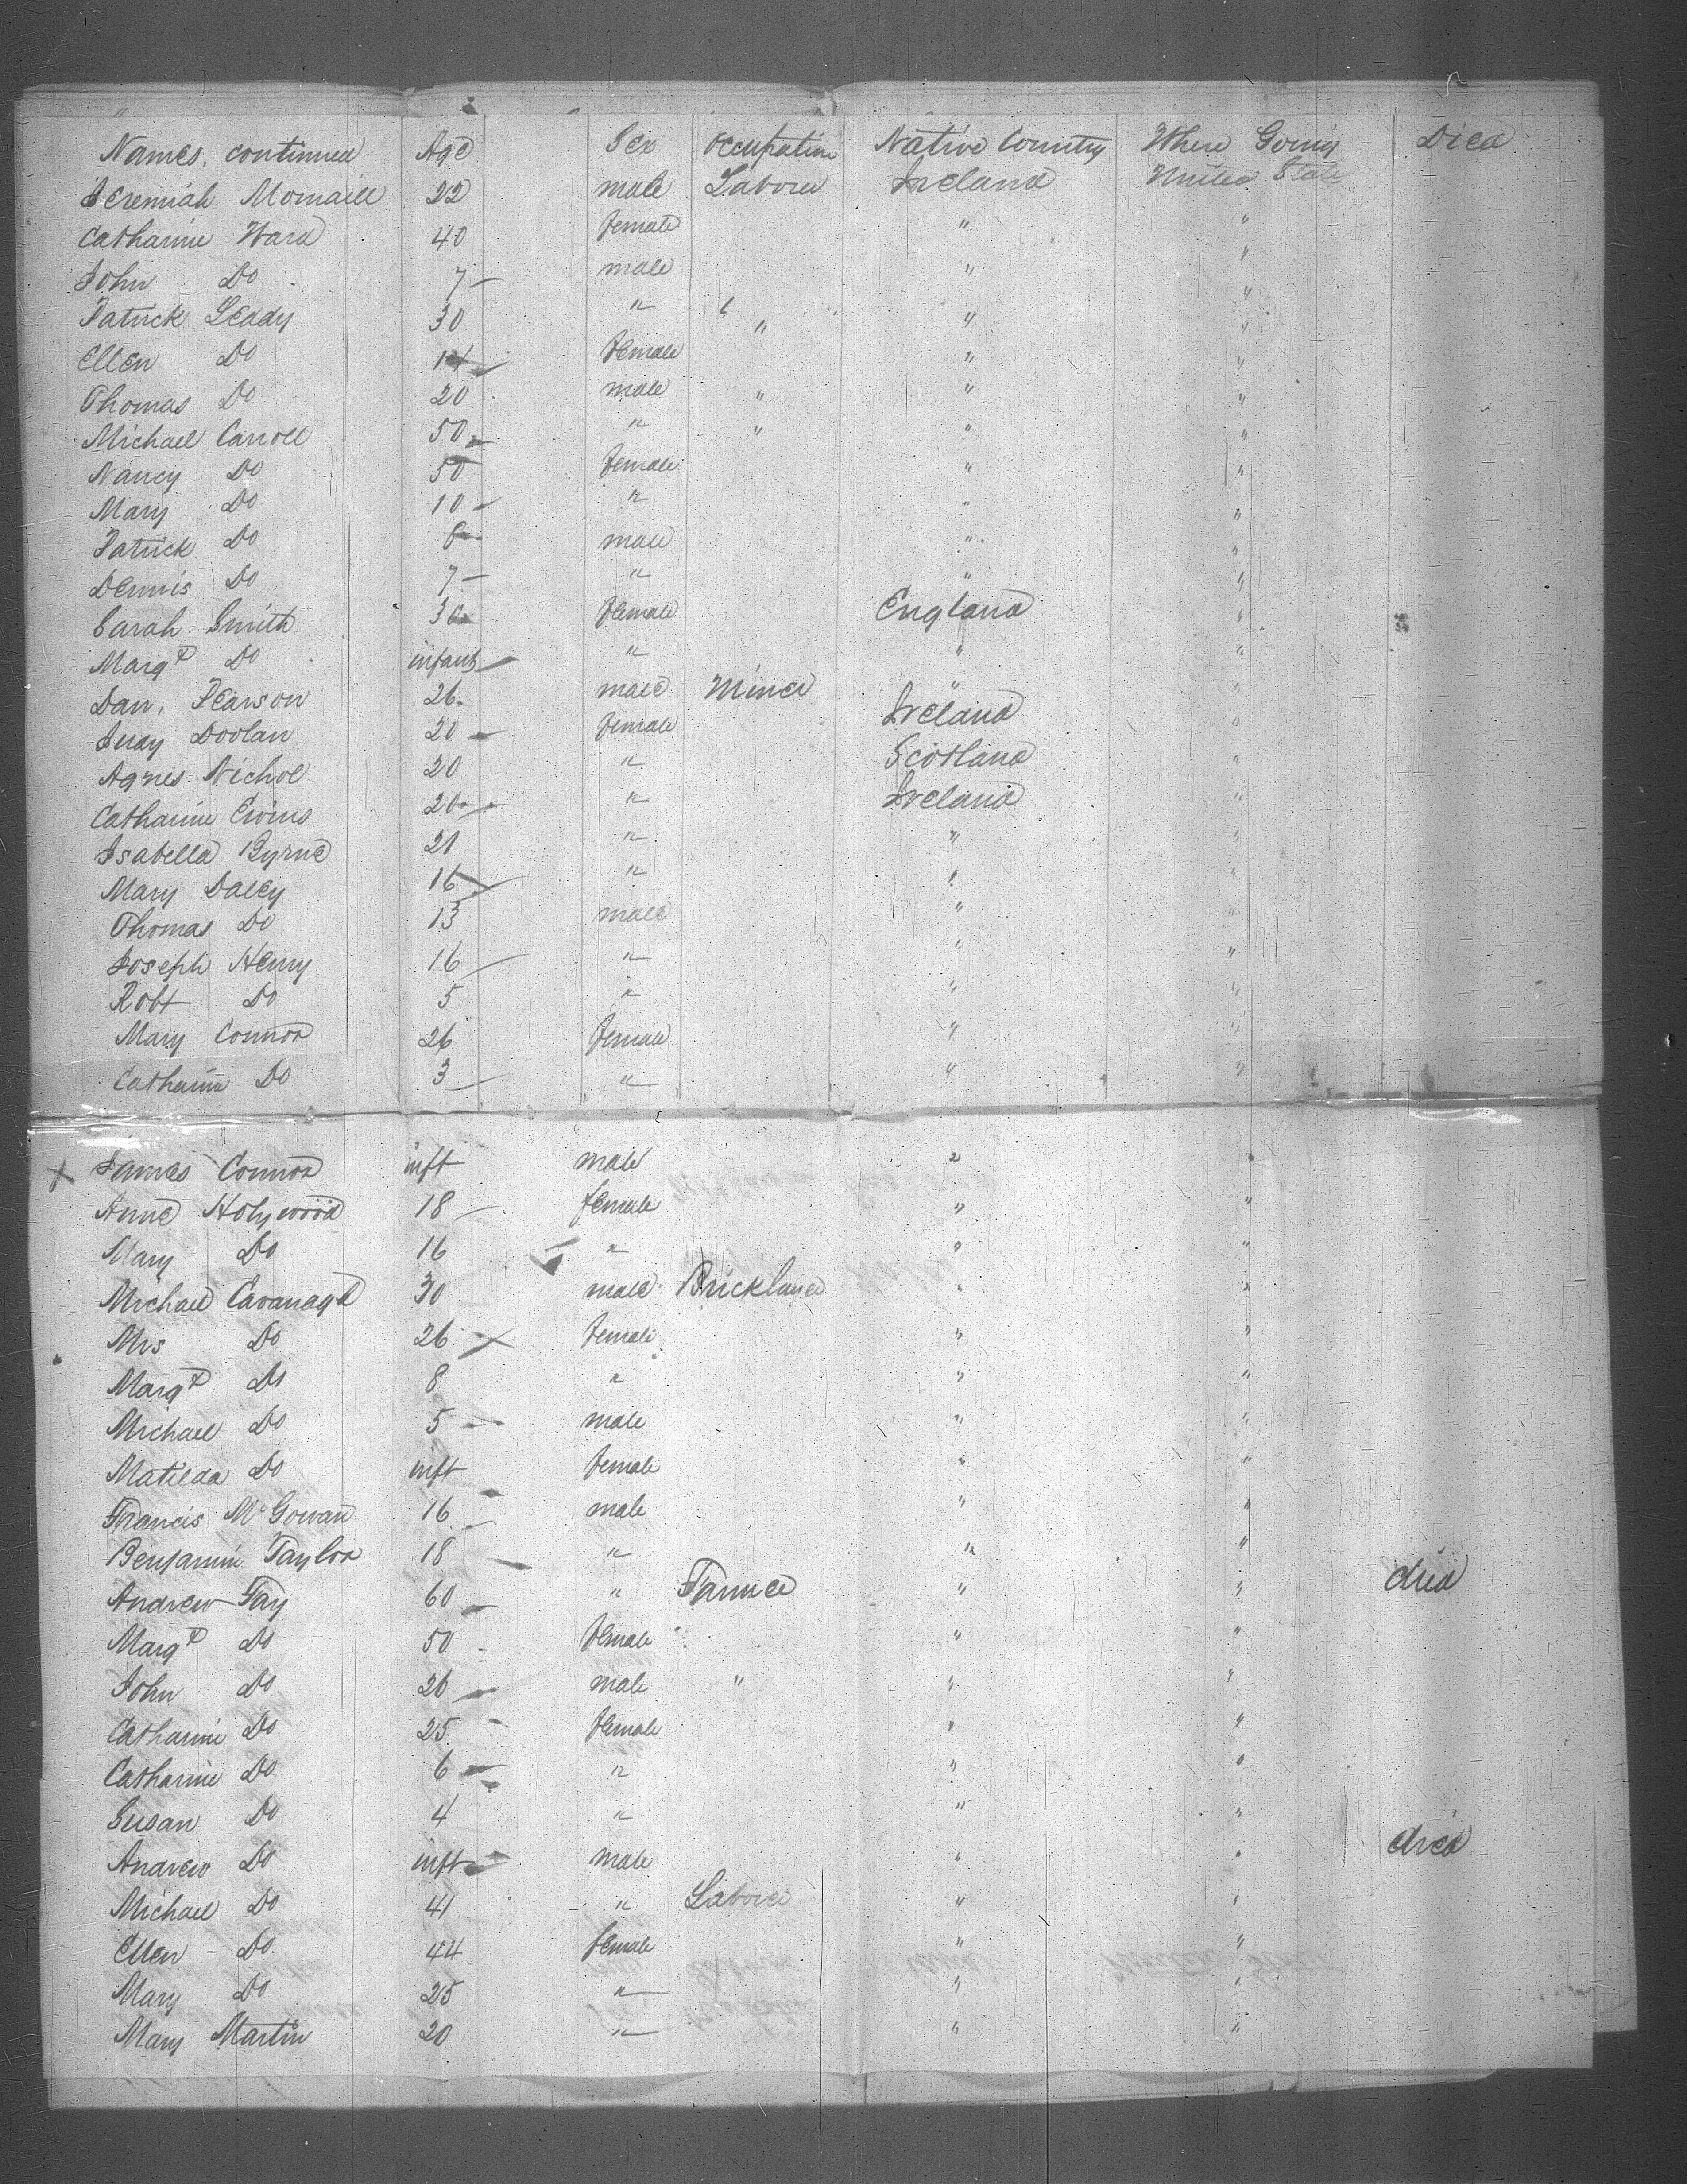 Names, continued Age Sex Occupation Native Country Where Going Died
Jeremiah 22 male Laborer Ireland United States
Catharine Ward 40 female " "
John Do 7 male " "
Patrick Leddy 30 " " " "
Ellen Do 14 female " "
Thomas Do 20 male " " "
Michael Carroll 50 " " " "
Nancy Do 50 female " "
Mary Do 10 " " "
Patrick Do 8 male " "
Dennis Do 7 " " "
Sarah Smith 30 female England "
Margt Do infant " " "
Dan. Pearson 26 male Miner " "
Judy Doolan 20 female Ireland "
Agnes Nichol 20 " Scotland "
Catharine Ewins 20 " Ireland "
Isabella Byrne 21 " " "
Mary Daley 16 " " "
Thomas Do 13 male " "
Joseph Henry 16 " " "
Robt Do 5 " " "
Mary Connor 26 female " "
Catharine Do 3 " " "
X James Connor inft male " "
Anne Holywood 18 female " "
Mary Do 16 " " "
Michael Cavanagh 30 male Bricklayer " "
Mrs Do 26 female " "
Margt Do 8 " " "
Michael Do 5 male " "
Matilda Do inft female " "
Francis McGowan 16 male " "
Benjamin Taylor 18 " " "
Andrew Fay 60 " Farmer " " died
Margt Do 50 female " "
John Do 26 male " " "
Catharine Do 25 female " "
Catharine Do 6 " " "
Susan Do 4 " " "
Andrew Do inft male " " died
Michael Do 41 " Laborer " "
Ellen Do 44 female " "
Mary Do 25 " " "
Mary Martin 20 " " "